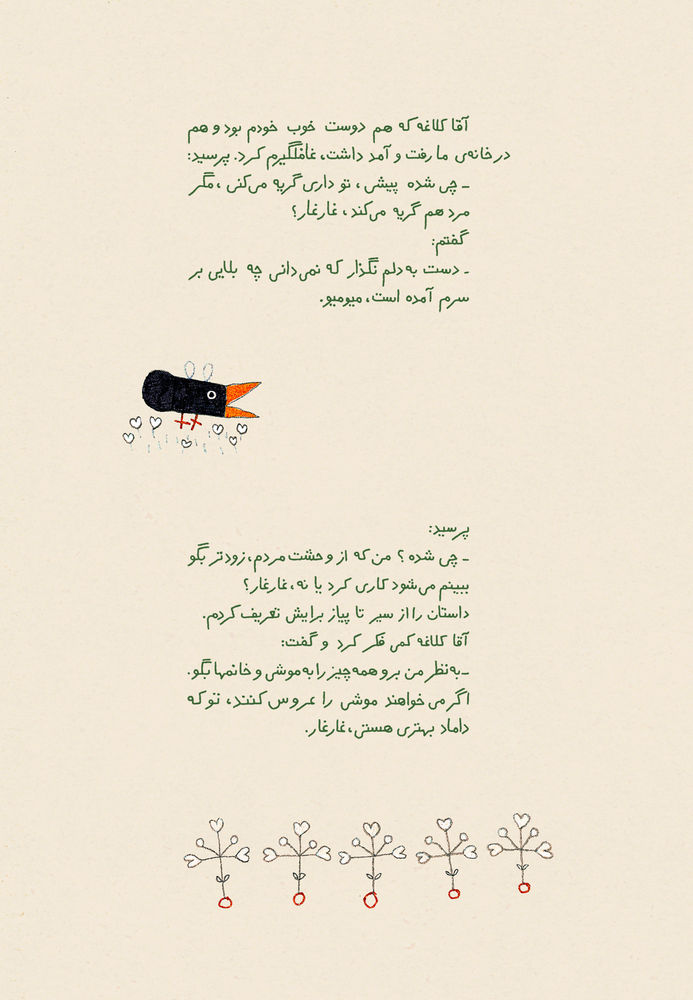 آقا کلاغه که هم دوست خوب خودم بود و هم
در خانه‌ی ما رفت و آمد داشت، غافلگیرم کرد. پرسید:
ـ چی شده پیشی، تو داری گریه می‌کنی، مگر
مرد هم گریه می‌کند، غارغار؟
گفتم:
ـ دست به دلم نگذار که نمی‌دانی چه بلایی بر
سرم آمده است، میومیو.
پرسید:
ـ چی شده؟ من که از وحشت مردم، زودتر بگو
ببینم می‌شود کاری کرد یا نه، غارغار؟
داستان را از سیر تا پیاز برایش تعریف کردم.
آقا کلاغه کمی فکر کرد و گفت:
ـ به نظر من برو همه چیز را به موشی و خانمها بگو.
اگر می‌خواهند موشی را عروس کنند، تو که
داماد بهتری هستی، غارغار.